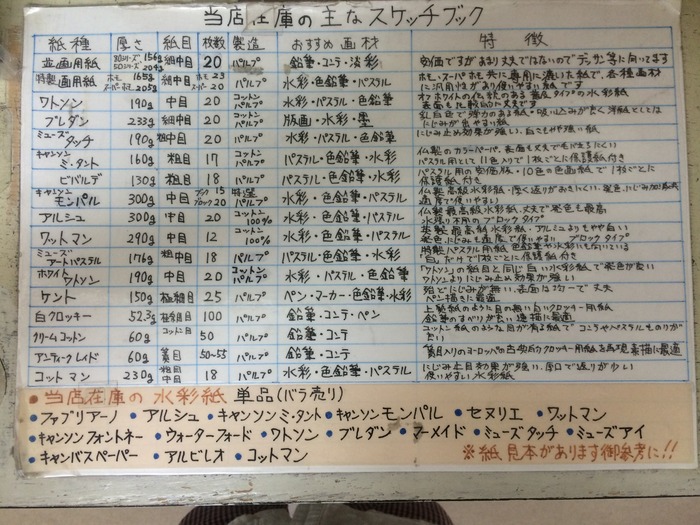 当店在庫の主なスケッチブック
紙種 厚さ 紙目 枚数 製造 おすすめ画材 特徴
並画用紙 30シリーズ 156g 50シリーズ 204g 細中目 20 パルプ 鉛筆・コンテ・淡彩 安価ですがあまり丈夫ではないのでデッサン等に向いてます
特製画用紙 ホモ 165g スーパーホモ 205g 細中目 ホモ 23 スーパーホモ 20 パルプ 水彩・色鉛筆・パステル ホモ、スーパーホモ共に専用に漉いた紙で、各種画材に汎用性があり使いやすい紙です
ワトソン 190g 中目 20 コットンパルプ 水彩・パステル・色鉛筆 オフホワイトのハリのある黄金タイプの水彩紙 表面も比較的に丈夫です
ブレダン 233g 細中目 20 パルプ 版画・水彩・墨 にじみが出やすい紙
ミューズタッチ 190g 粗中目 20 パルプ 水彩・パステル・色鉛筆 にじみ止め効果が強い、白さも
キャンソンミ・タント 160g 粗目 17 コットンパルプ パステル・色鉛筆・水彩 仏製のカラーペーパー、表面も丈夫で毛ばだちにくい パステル用として11色入りで1枚ごとに保護紙付き
ビバルデ 130g 粗目 18 パルプ パステル・色鉛筆・水彩 パステル用の安価版・10色の色画紙で1枚ごとに保護紙付き
キャンソンモンバル 300g 中目 ブック 15 ブロック 20 特選パルプ 水彩・色鉛筆・パステル 仏製高級水彩紙・厚く波りがおきにくい、発色、にじみ加減共 適度で使いやすい
アルシュ 300g 中目 20 コットン100% 水彩・色鉛筆・パステル 仏製最高級水彩紙、丈夫で発色も最高 水張り不用のブロックタイプ
ワットマン 290g 中目 12 コットン100% 水彩・色鉛筆・パステル 英製最高級水彩紙・アルシュよりもやや白い 発色・にじみも適度で使いやすい ブロックタイプ
ミューズアートパステル 176g 粗中目 18 パルプ パステル・水彩・色鉛筆 特製パステル用紙 色鉛筆や水彩にもむいている 白、だけで1枚ごとに保護紙付き
ホワイトワトソン 190g 中目 20 コットンパルプ 水彩・パステル・色鉛筆 「ワトソン」の紙目と同じ白い水彩紙で発色が良い ワトソンよりにじみ止め効果が強い
ケント 150g 極細目 25 パルプ ペン・マーカー・色鉛筆・水彩 殆どにじみが無い、表面もスムーズで丈夫 ペン描きに最適
白クロッキー 52.3g 極細目 100 パルプ 鉛筆・コンテ・ペン 上製紙のような目の無い白いクロッキー用紙 鉛筆のすべりが良い 速描に最適
クリームコットン 60g コットン目 50 パルプ 鉛筆・コンテ コットン紙のような目がある紙で コンテやパステルものりが良い
アンティークレイド 60g 簀目 50~55 パルプ 鉛筆・コンテ 簀目入りのヨーロッパの古典的クロッキー用紙を再現 素描に最適
コットマン 230g 粗目 中目 18 パルプ 水彩・色鉛筆・パステル にじみ止目効果が強い、厚口で返りが少い 使いやすい水彩紙
●当店在庫の水彩紙 単品(バラ売り)
●ファブリアーノ ●アルシュ ●キャンソンミ・タント ●キャンソンモンバル ●セヌリエ ●ワットマン
●キャンソンフォントネー ●ウォーターフォード ●ワトソン ●ブレダン ●マーメイド ●ミューズタッチ ●ミューズアイ
●キャンバスペーパー ●アルビレオ ●コットマン ※紙見本があります御参考に!!